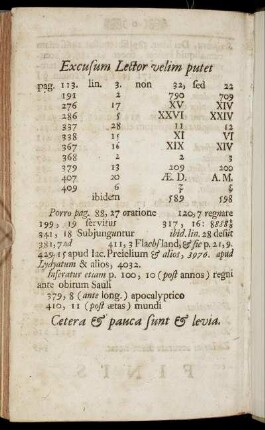 Excusum Lector velim putet
pag. 113. lin. 3. non 32, sed 22
191 2 790 709
276 17 XV XIV
286 5 XXVI XXIV
337 28 11 12
338 15 XI VI
367 16 XIX XIV
368 2 2 3
379 13 209 200
407 20 Æ. D. A. M.
409 6
ibidem 589 598
Porro pag. 88, 27 oratione 120, 7 regnare
199, 19 servitur 317, 16:
341, 18 Subjunguntur ibid. lin. 28 desut
281, 7 ad 411, 3 Flaebsland, & sic p. 21, 9.
429, 15 apud Iac. Preielium & alios, 3976. apud
Lydyatum & alios, 4032.
Inseratur etiam p. 100, 10 (post annos) regni
ante obitum Sauli
379, 8 (ante long.) apocalyptico
410, 11 (post ætas) mundi
Cetera & pauca sunt & levia.